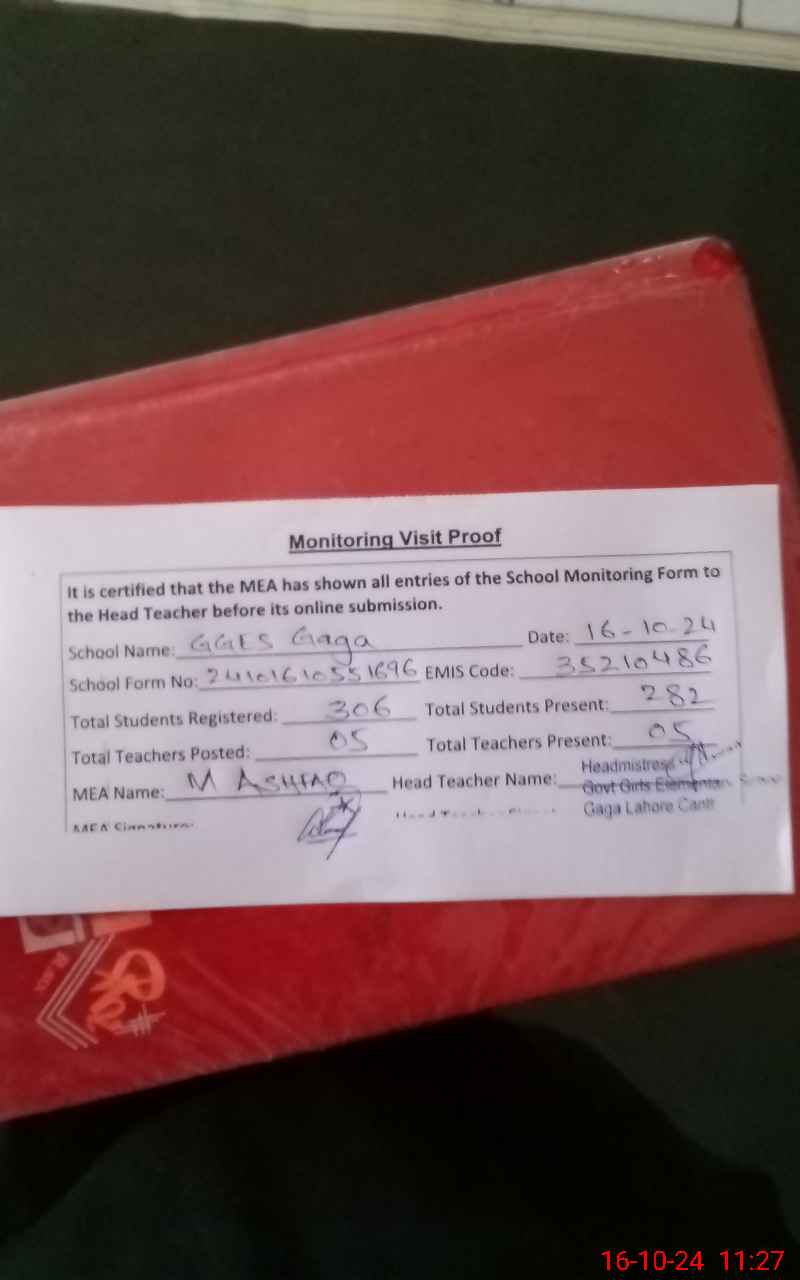 Monitoring Visit Proof
It is certified that the MEA has shown all entries of the School Monitoring Form to
the Head Teacher before its online submission.
School Name: GGES Gaga Date: 16-10-24
School Form No: 24101610551696 EMIS Code: 35210486
Total Students Registered: 306 Total Students Present: 282
Total Teachers Posted: 05 Total Teachers Present: 05
MEA Name: M ASHFAQ Head Teacher Name: Headmistress
Govt Girls Elementary
Gaga Lahore Cantt
MEA Signature:
16-10-24 11:27